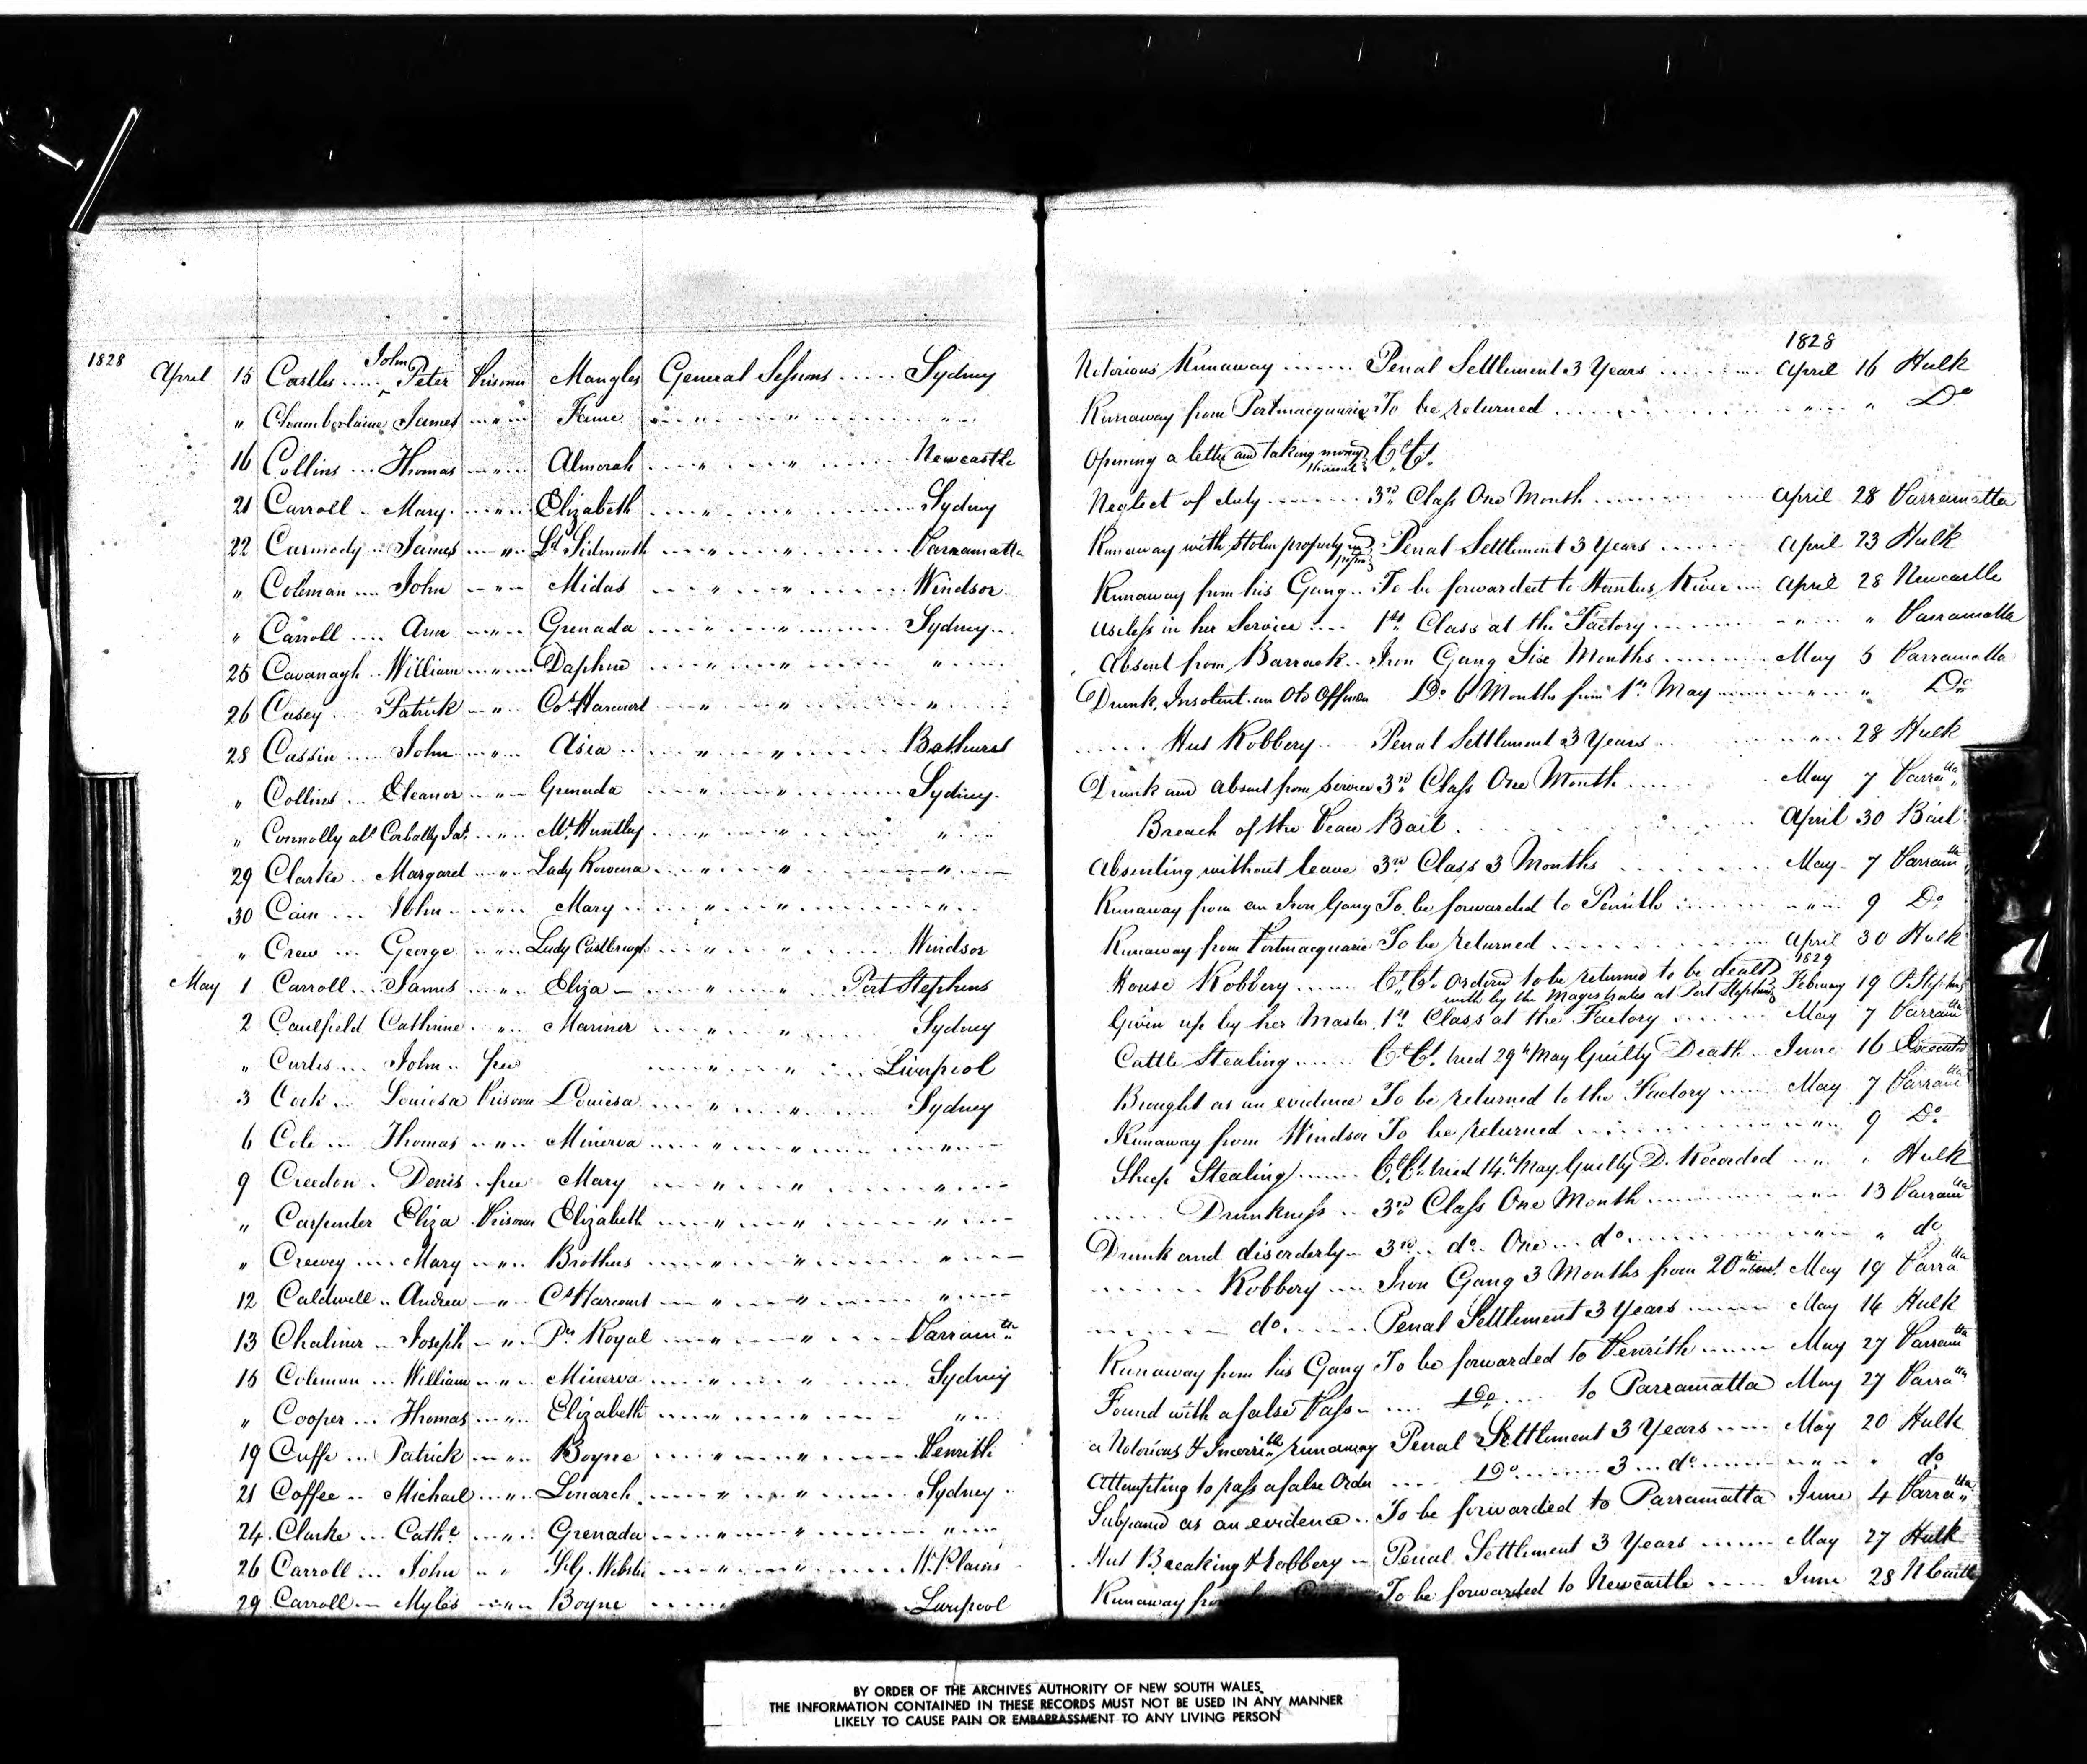 1828
1828 April 15 Castles ..... John Peter Prisoner Mangles General Sessions ...... Sydney Notorious Runaway ....... Penal Settlement 3 Years ....... April 16 Hulk
" Chamberlaine James " Fame " " Runaway from Portmacquarie To be returned ....... " " Do
16 Collins ... Thomas " Almorah " " Newcastle Opening a letter and taking money C. Ct.
21 Carroll .. Mary " Elizabeth " " Sydney Neglect of duty ....... 3rd Class One Month ....... April 28 Parramatta
22 Carmody .. James " Ld Sidmouth " " Parramatta Runaway with stolen property in Penal Settlement 3 Years ...... April 23 Hulk
" Coleman .... John " Midas " " Windsor Runaway from his Gang .. To be forwarded to Hunters River .... April 28 Newcastle
" Carroll .... Ann " Grenada " " Sydney Useless in her Service .... 1st Class at the Factory ....... " " Parramatta
25 Cavanagh .. William " Daphne " " " Absent from Barrack .. Iron Gang Six Months ....... May 5 Parramatta
26 Casey ... Patrick " Cs Harcourt " " " Drunk, Insolent an Old Offender Do 6 Months from 1st May ..... " " Do
28 Cassin ... John " Asia " " Bathurst ..... Hut Robbery ... Penal Settlement 3 Years ... " 28 Hulk
" Collins ... Eleanor " Grenada " " Sydney Drunk and absent from service 3rd Class One Month ..... May 7 Parratta
" Connolly als Corbally Jas. " Mt Huntley " " " Breach of the Peace Bail ....... April 30 Bail
29 Clarke .. Margaret " Lady Rowena " " " Absenting without leave 3rd Class 3 Months ....... May 7 Parramtta
30 Cain ... John " Mary " " " Runaway from an Iron Gang To be forwarded to Penrith ....... " 9 Do
" Crew ... George " Lady Castlereagh " " Windsor Runaway from Portmacquarie To be returned ....... April 30 Hulk
May 1 Carroll ... James " Eliza " " Port Stephens House Robbery ...... C. Ct. Ordered to be returned to be dealt 1829 February 19 P. Stephens
with by the Magistrates at Port Stephens
2 Caulfield Cathrine " Mariner " " Sydney Given up by her Master 1st Class at the Factory ...... May 7 Parramtta
" Curtis ... John .. free " " Liverpool Cattle Stealing ..... C. Ct. tried 29th May Guilty Death .. June 16 Executed
3 Cock ... Louiesa Prisoner Louiesa " " Sydney Brought as an evidence To be returned to the Factory ..... May 7 Parramtta
6 Cole ... Thomas " Minerva " " " Runaway from Windsor To be returned ....... " 9 Do
9 Creedon . Denis . free Mary " " " Sheep Stealing ..... C. Ct. tried 14th May Guilty D. Recorded " " Hulk
" Carpenter Eliza . Prisoner Elizabeth " " " ..... Drunkness .. 3rd Class One Month ....... " 13 Parramtta
" Creevey ... Mary " Brothers " " " Drunk and disorderly - 3rd .. do .. One ... do ....... " " do
12 Caldwell .. Andrew " Cs Harcourt " " " ...... Robbery .... Iron Gang 3 Months from 20th inst. May 19 Parratta
13 Chaliner .. Joseph " Ps Royal " " Parramtta ..... do ...... Penal Settlement 3 Years ...... May 14 Hulk
15 Coleman ... William " Minerva " " Sydney Runaway from his Gang To be forwarded to Penrith ..... May 27 Parramtta
" Cooper ... Thomas " Elizabeth " " " Found with a false Pass - .... Do .... to Parramatta May 27 Parratta
19 Cuffe ... Patrick " Boyne " " Penrith a Notorious & Incorrible runaway Penal Settlement 3 Years ..... May 20 Hulk
21 Coffee .. Michael " Lenarch " " Sydney Attempting to pass a false Order .... Do ...... 3 ... do ...... " " do
24 Clarke ... Cathe " Grenada " " " Subpœned as an evidence .. To be forwarded to Parramatta June 4 Parratta
26 Carroll ... John " " " Wt Plains Hut Breaking & Robbery - Penal Settlement 3 Years ...... May 27 Hulk
29 Carroll .... Myles " Boyne Liverpool Runaway from To be forwarded to Newcastle ..... June 28 NCastle
BY ORDER OF THE ARCHIVES AUTHORITY OF NEW SOUTH WALES,
THE INFORMATION CONTAINED IN THESE RECORDS MUST NOT BE USED IN ANY MANNER
LIKELY TO CAUSE PAIN OR EMBARRASSMENT TO ANY LIVING PERSON